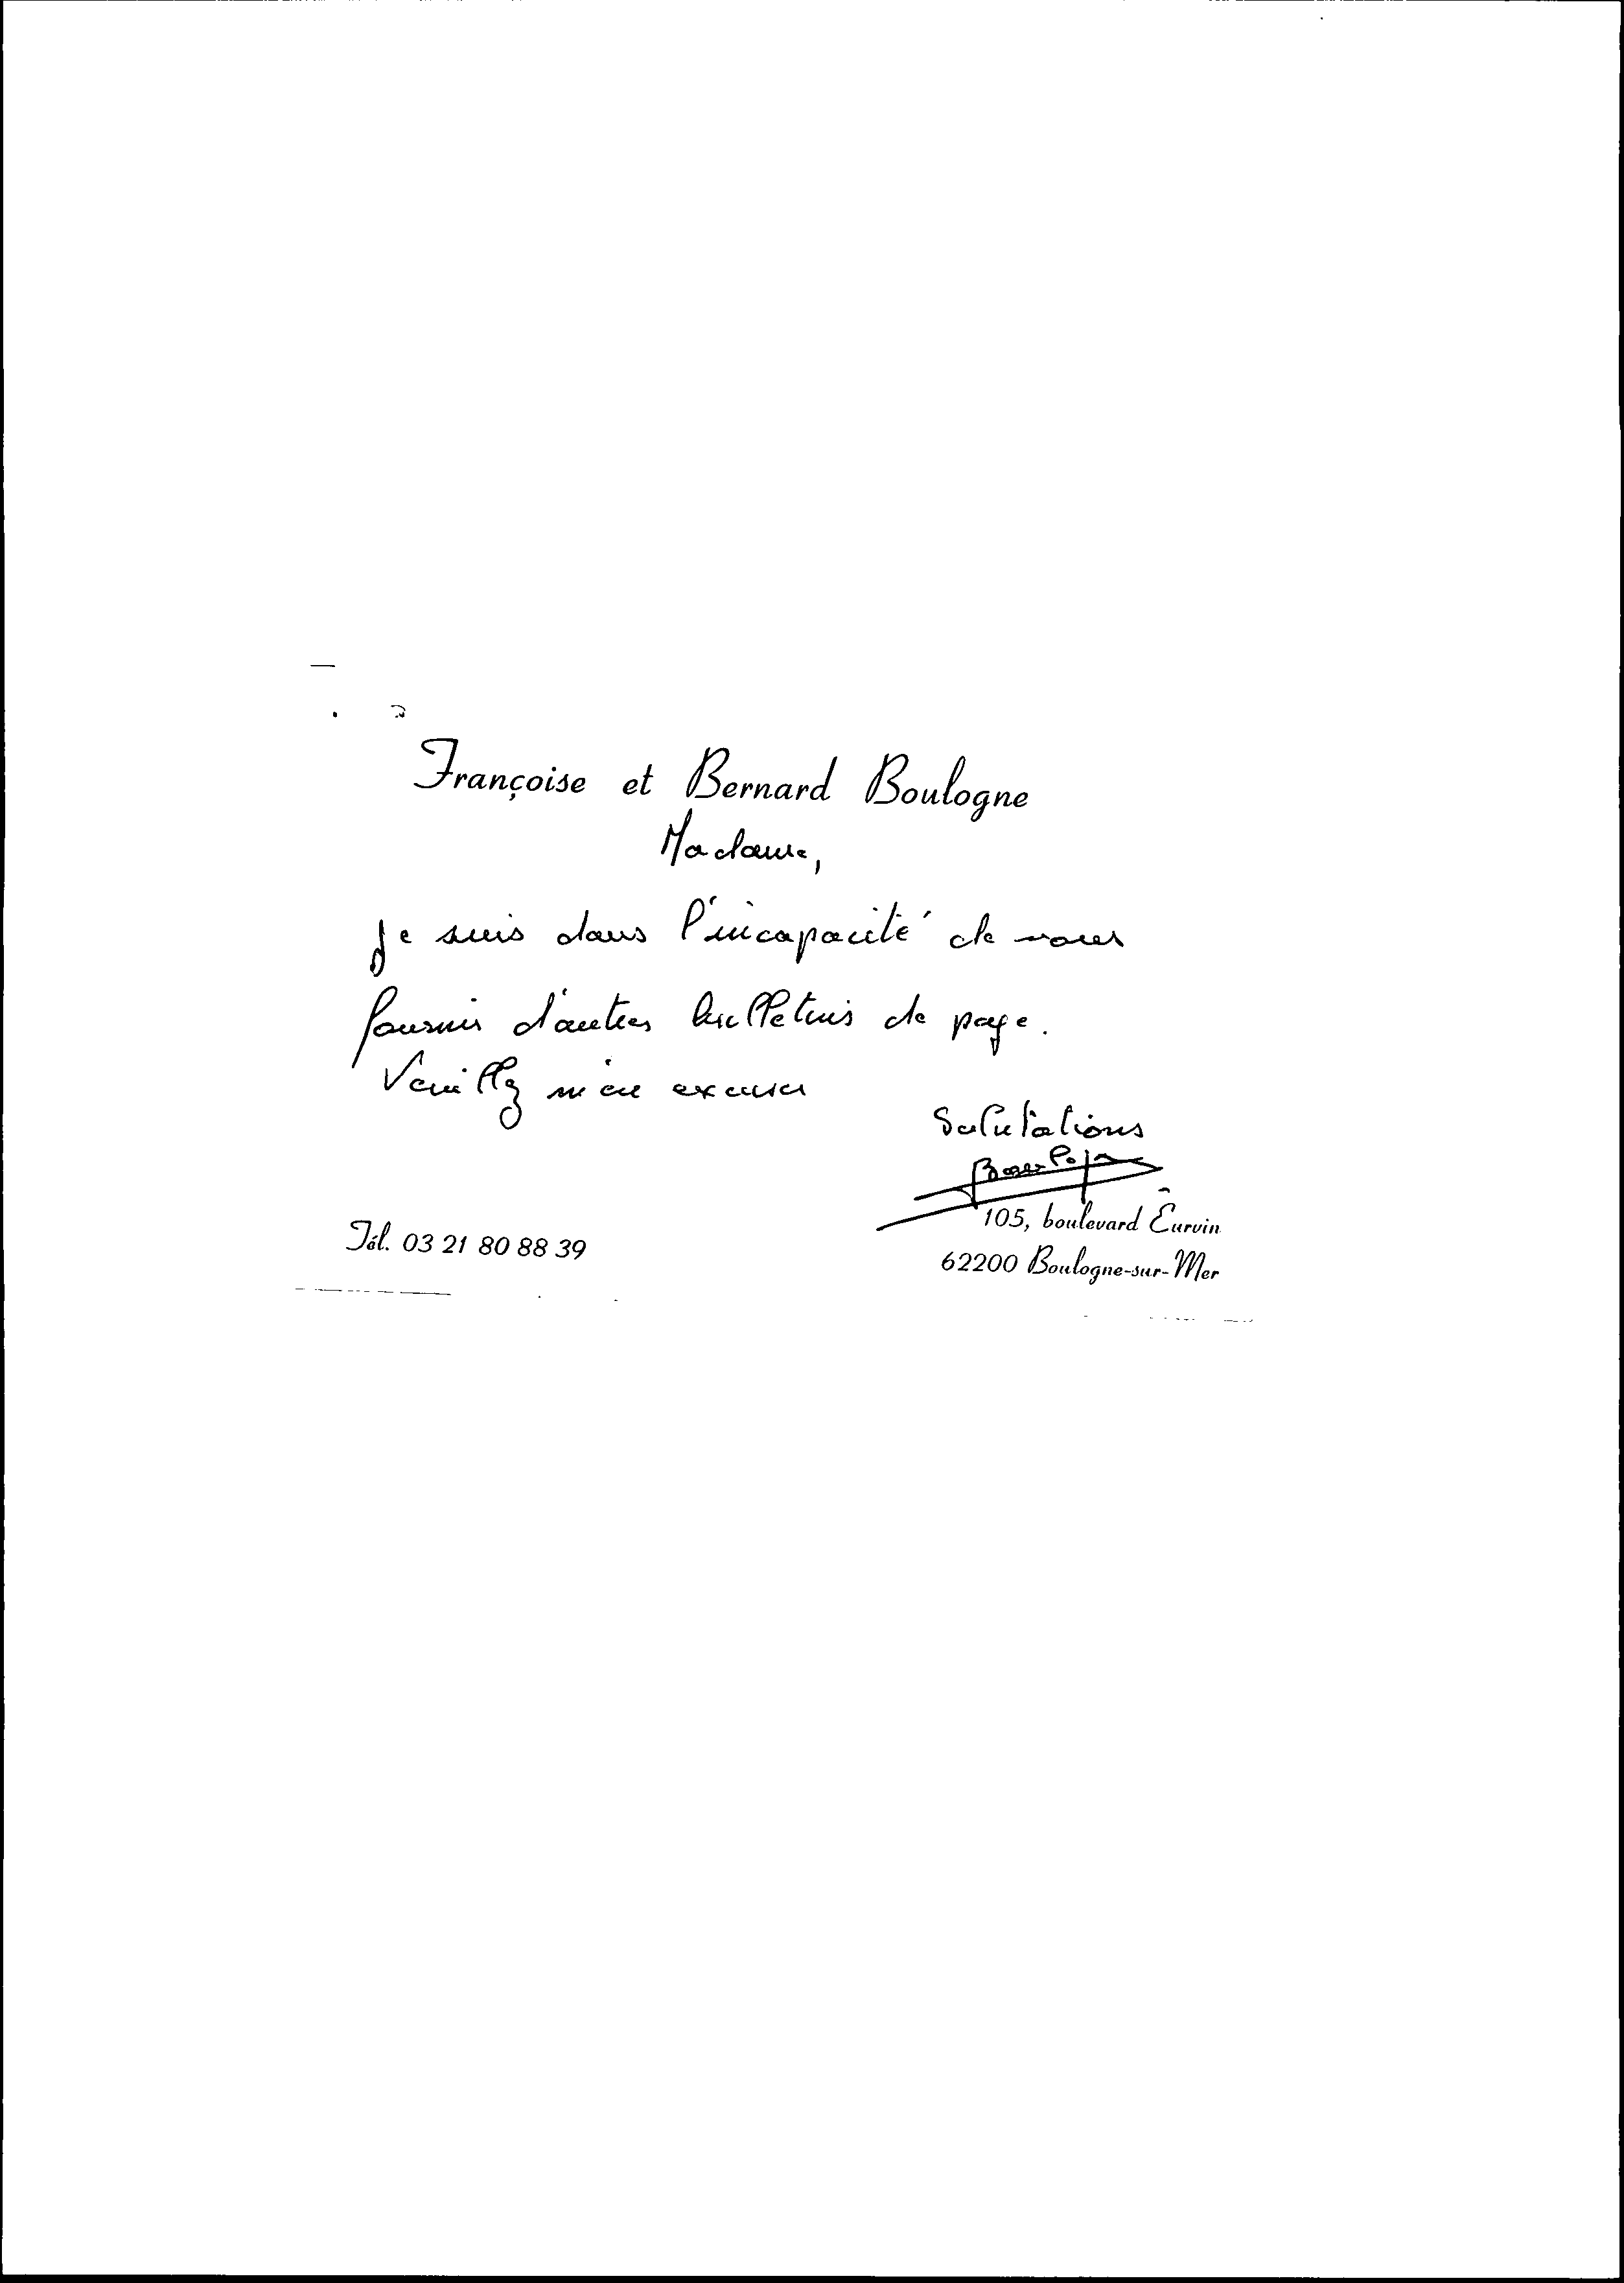 Françoise et Bernard Boulogne
Madame,
Je suis dans l'incapacité de vous
fournir d'autres bulletins de paye.
Veuillez m'en excuser
Salutations
Tél. 03 21 80 88 39
105, boulevard Eurvin
62200 Boulogne-sur-Mer